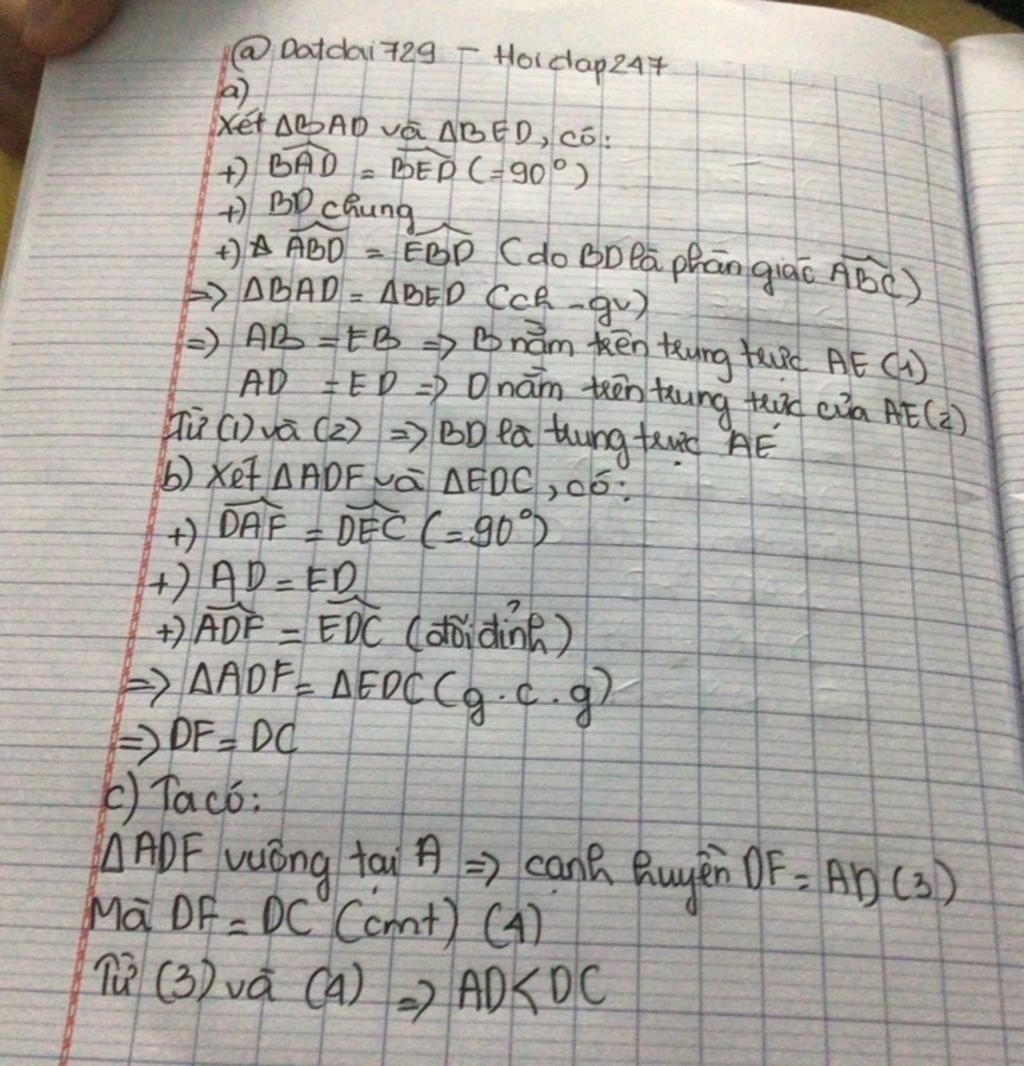 @Datdai729 - Hoidap247
a)
Xét ΔBAD và ΔBED, có:
+) BAD = BED (=90°)
+) BD chung
+) Δ ABD = EBD (do BD là phân giác ABC)
=> ΔBAD = ΔBED (ch - gv)
=> AB = EB => B nằm trên trung trực AE (1)
AD = ED => D nằm trên trung trực của AE (2)
Từ (1) và (2) => BD là trung trực AE
b) Xét ΔADF và ΔEDC, có:
+) DAF = DEC (=90°)
+) AD = ED
+) ADF = EDC (đối đỉnh)
=> ΔADF = ΔEDC (g.c.g)
=> DF = DC
c) Ta có:
ΔADF vuông tại A => cạnh huyền DF = AD (3)
Mà DF = DC (cmt) (4)
Từ (3) và (4) => AD < DC